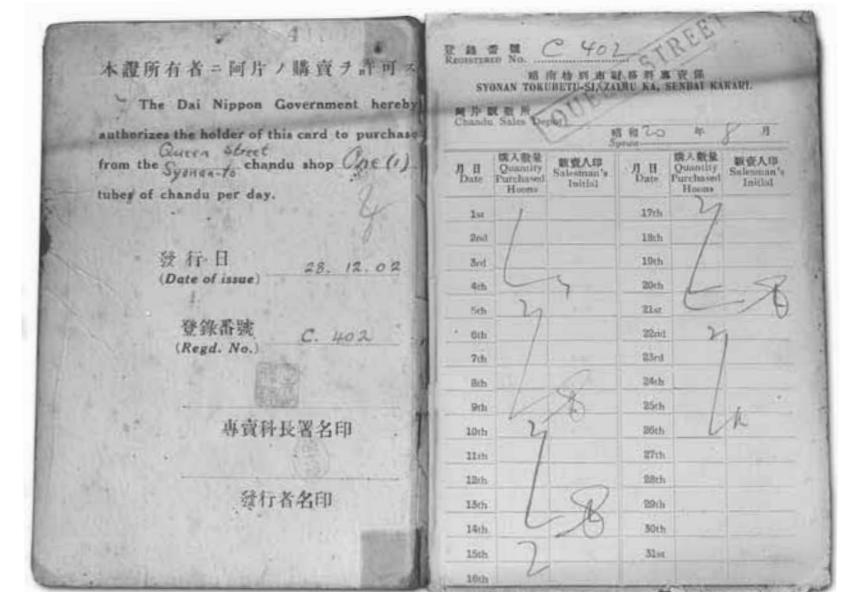 本證所有者ニ阿片ノ購賣ヲ許可ス
The Dai Nippon Government hereby
authorizes the holder of this card to purchase
from the Queen Street Syonan-to chandu shop One (1)
tubes of chandu per day.
發行日
(Date of issue) 28. 12. 02
登錄番號
(Regd. No.) C. 402
專賣科長署名印
發行者名印
登錄番號
Registered No. C 402
QUEEN STREET
昭南特別市財務科專賣係
SYONAN TOKUBETU-SI, ZAIMU KA, SENBAI KAKARI.
阿片販賣所
Chandu Sales Depot
昭和 20 年 8 月
Syowa
月日 購入數量 販賣人印 月日 購入數量 販賣人印
Date Quantity Purchased Hoons Salesman's Initial Date Quantity Purchased Hoons Salesman's Initial
1st 17th
2nd 18th
3rd 19th
4th 20th
5th 21st
6th 22nd
7th 23rd
8th 24th
9th 25th
10th 26th
11th 27th
12th 28th
13th 29th
14th 30th
15th 31st
16th